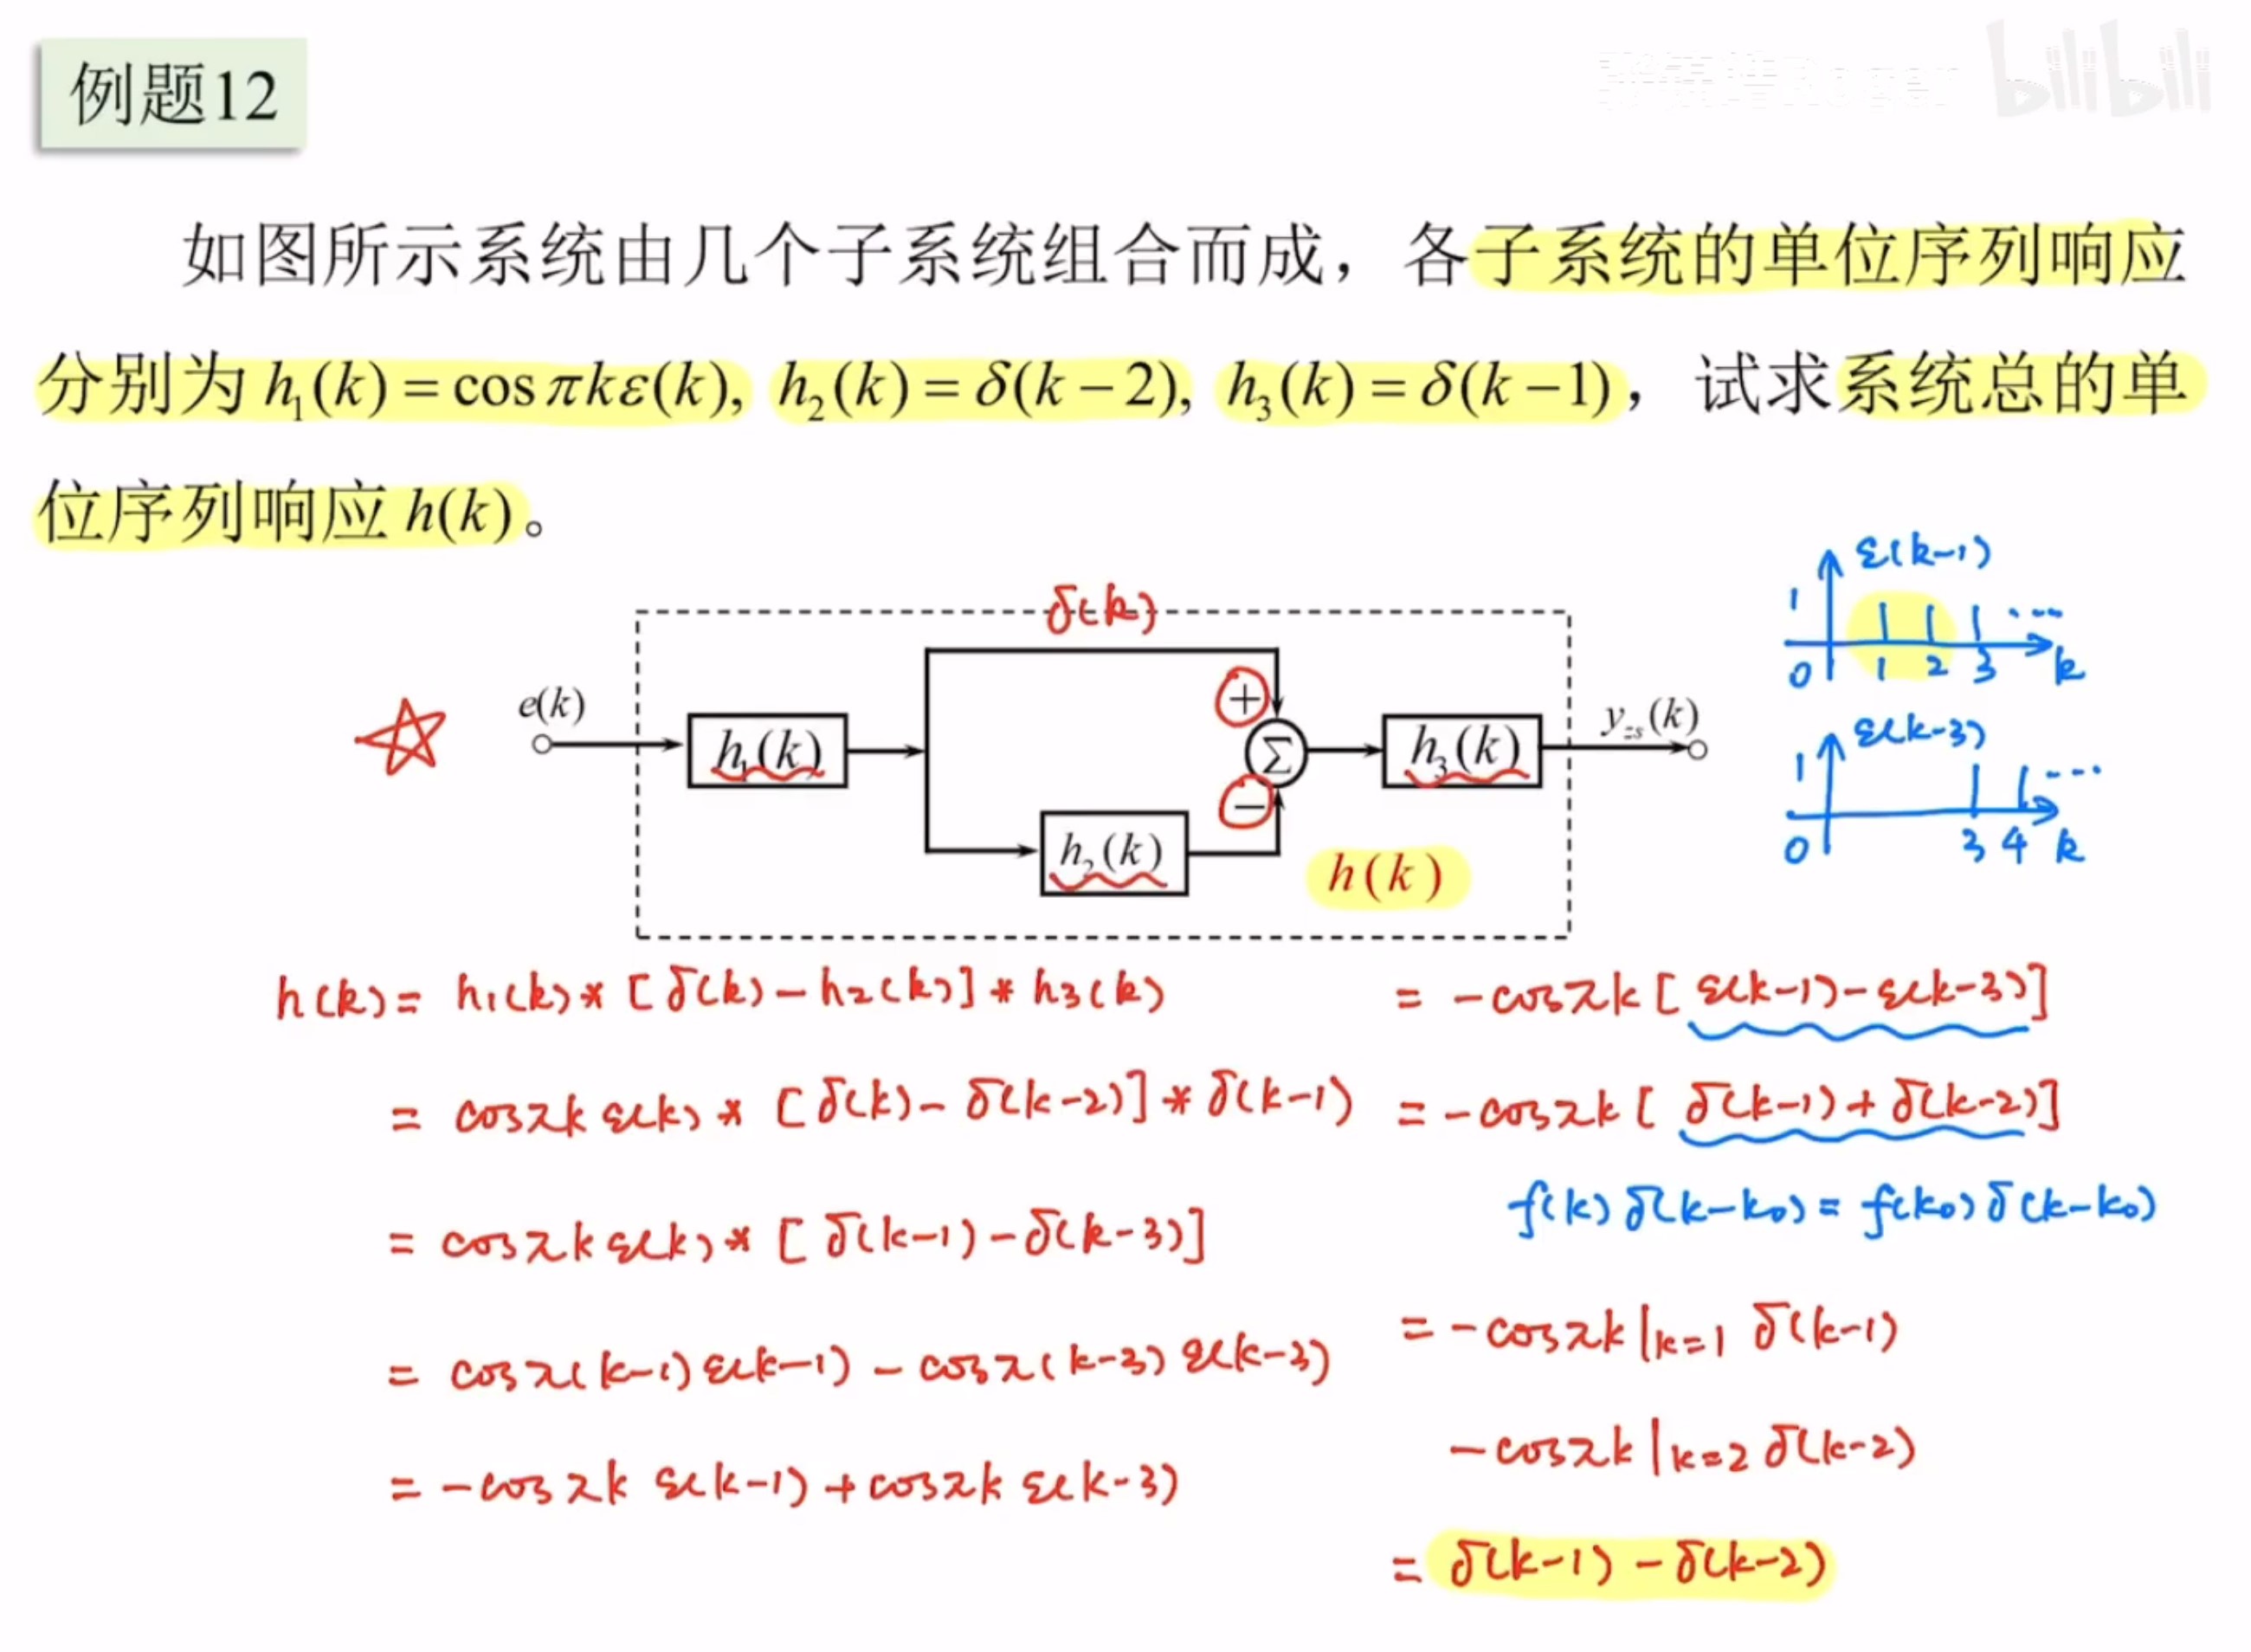 例题12
bilibili
如图所示系统由几个子系统组合而成，各子系统的单位序列响应
分别为 h₁(k) = cos πkε(k), h₂(k) = δ(k − 2), h₃(k) = δ(k −1)，试求系统总的单
位序列响应 h(k)。
δ(k)
e(k)
h₁(k)
+
Σ
−
h₂(k)
h₃(k)
y_zs(k)
h(k)
ε(k-1)
1
0 1 2 3 ... k
ε(k-3)
1
0 3 4 ... k
h(k) = h₁(k) * [δ(k) - h₂(k)] * h₃(k)
= cosπk ε(k) * [δ(k) - δ(k-2)] * δ(k-1)
= cosπk ε(k) * [δ(k-1) - δ(k-3)]
= cosπ(k-1) ε(k-1) - cosπ(k-3) ε(k-3)
= -cosπk ε(k-1) + cosπk ε(k-3)
= -cosπk [ε(k-1) - ε(k-3)]
= -cosπk [δ(k-1) + δ(k-2)]
f(k) δ(k-k₀) = f(k₀) δ(k-k₀)
= -cosπk |k=1 δ(k-1)
-cosπk |k=2 δ(k-2)
= δ(k-1) - δ(k-2)